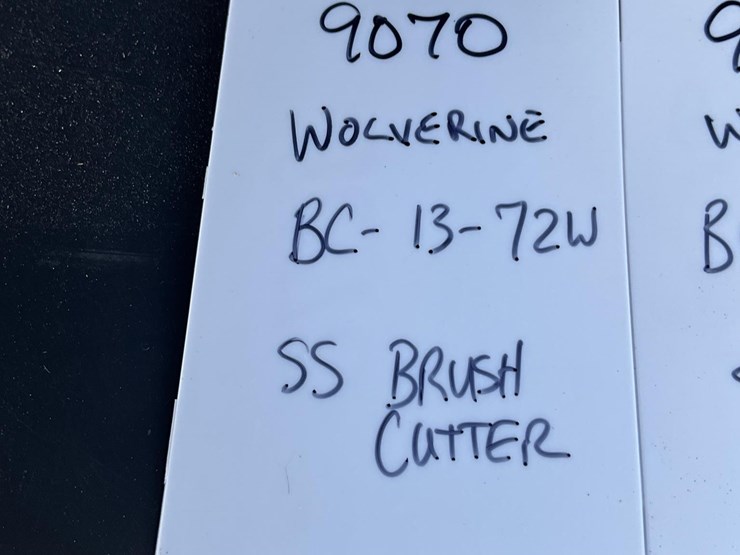 9070
WOLVERINE
BC-13-72W
SS BRUSH
CUTTER